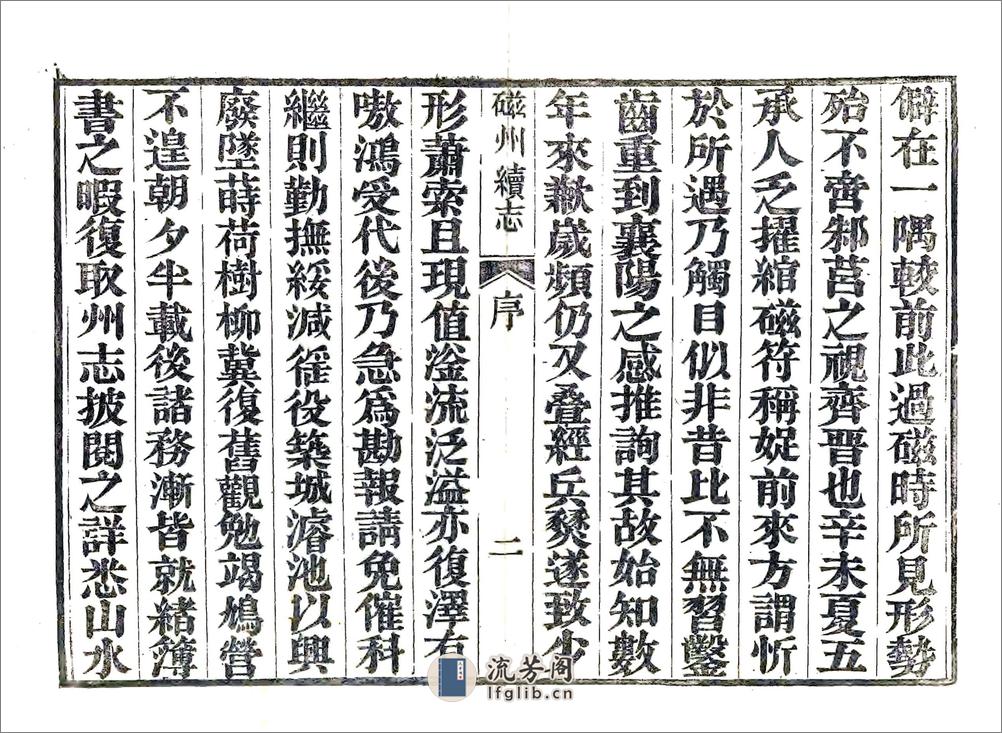 僻在一隅較前此過磁時所見形勢
殆不啻邾莒之視齊晉也辛未夏五
承人乏擢綰磁符稱娖前來方謂忻
於所遇乃觸目似非昔比不無習鑿
齒重到襄陽之感推詢其故始知數
年來歉歲頻仍又疊經兵燹遂致少
磁州續志 序 二
形蕭索且現值滏流泛溢亦復澤有
嗷鴻受代後乃急爲勘報請免催科
繼則勤撫綏減徭役築城濬池以興
廢墜蒔荷樹柳冀復舊觀勉竭鳩營
不遑朝夕半載後諸務漸皆就緒簿
書之暇復取州志披閱之詳悉山水
流芳阁
lfglib.cn